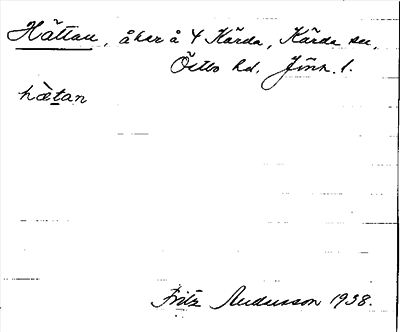 Hättan, åker å 4 Kärda, Kärda sn,
Östbo hd. Jönk. l.
hæ̀tan
Fritz Andersson 1938.